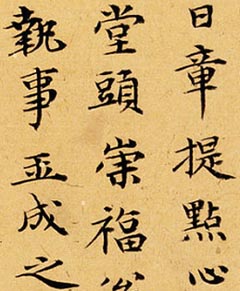 日章提點心
堂頭崇福公
執事並成之